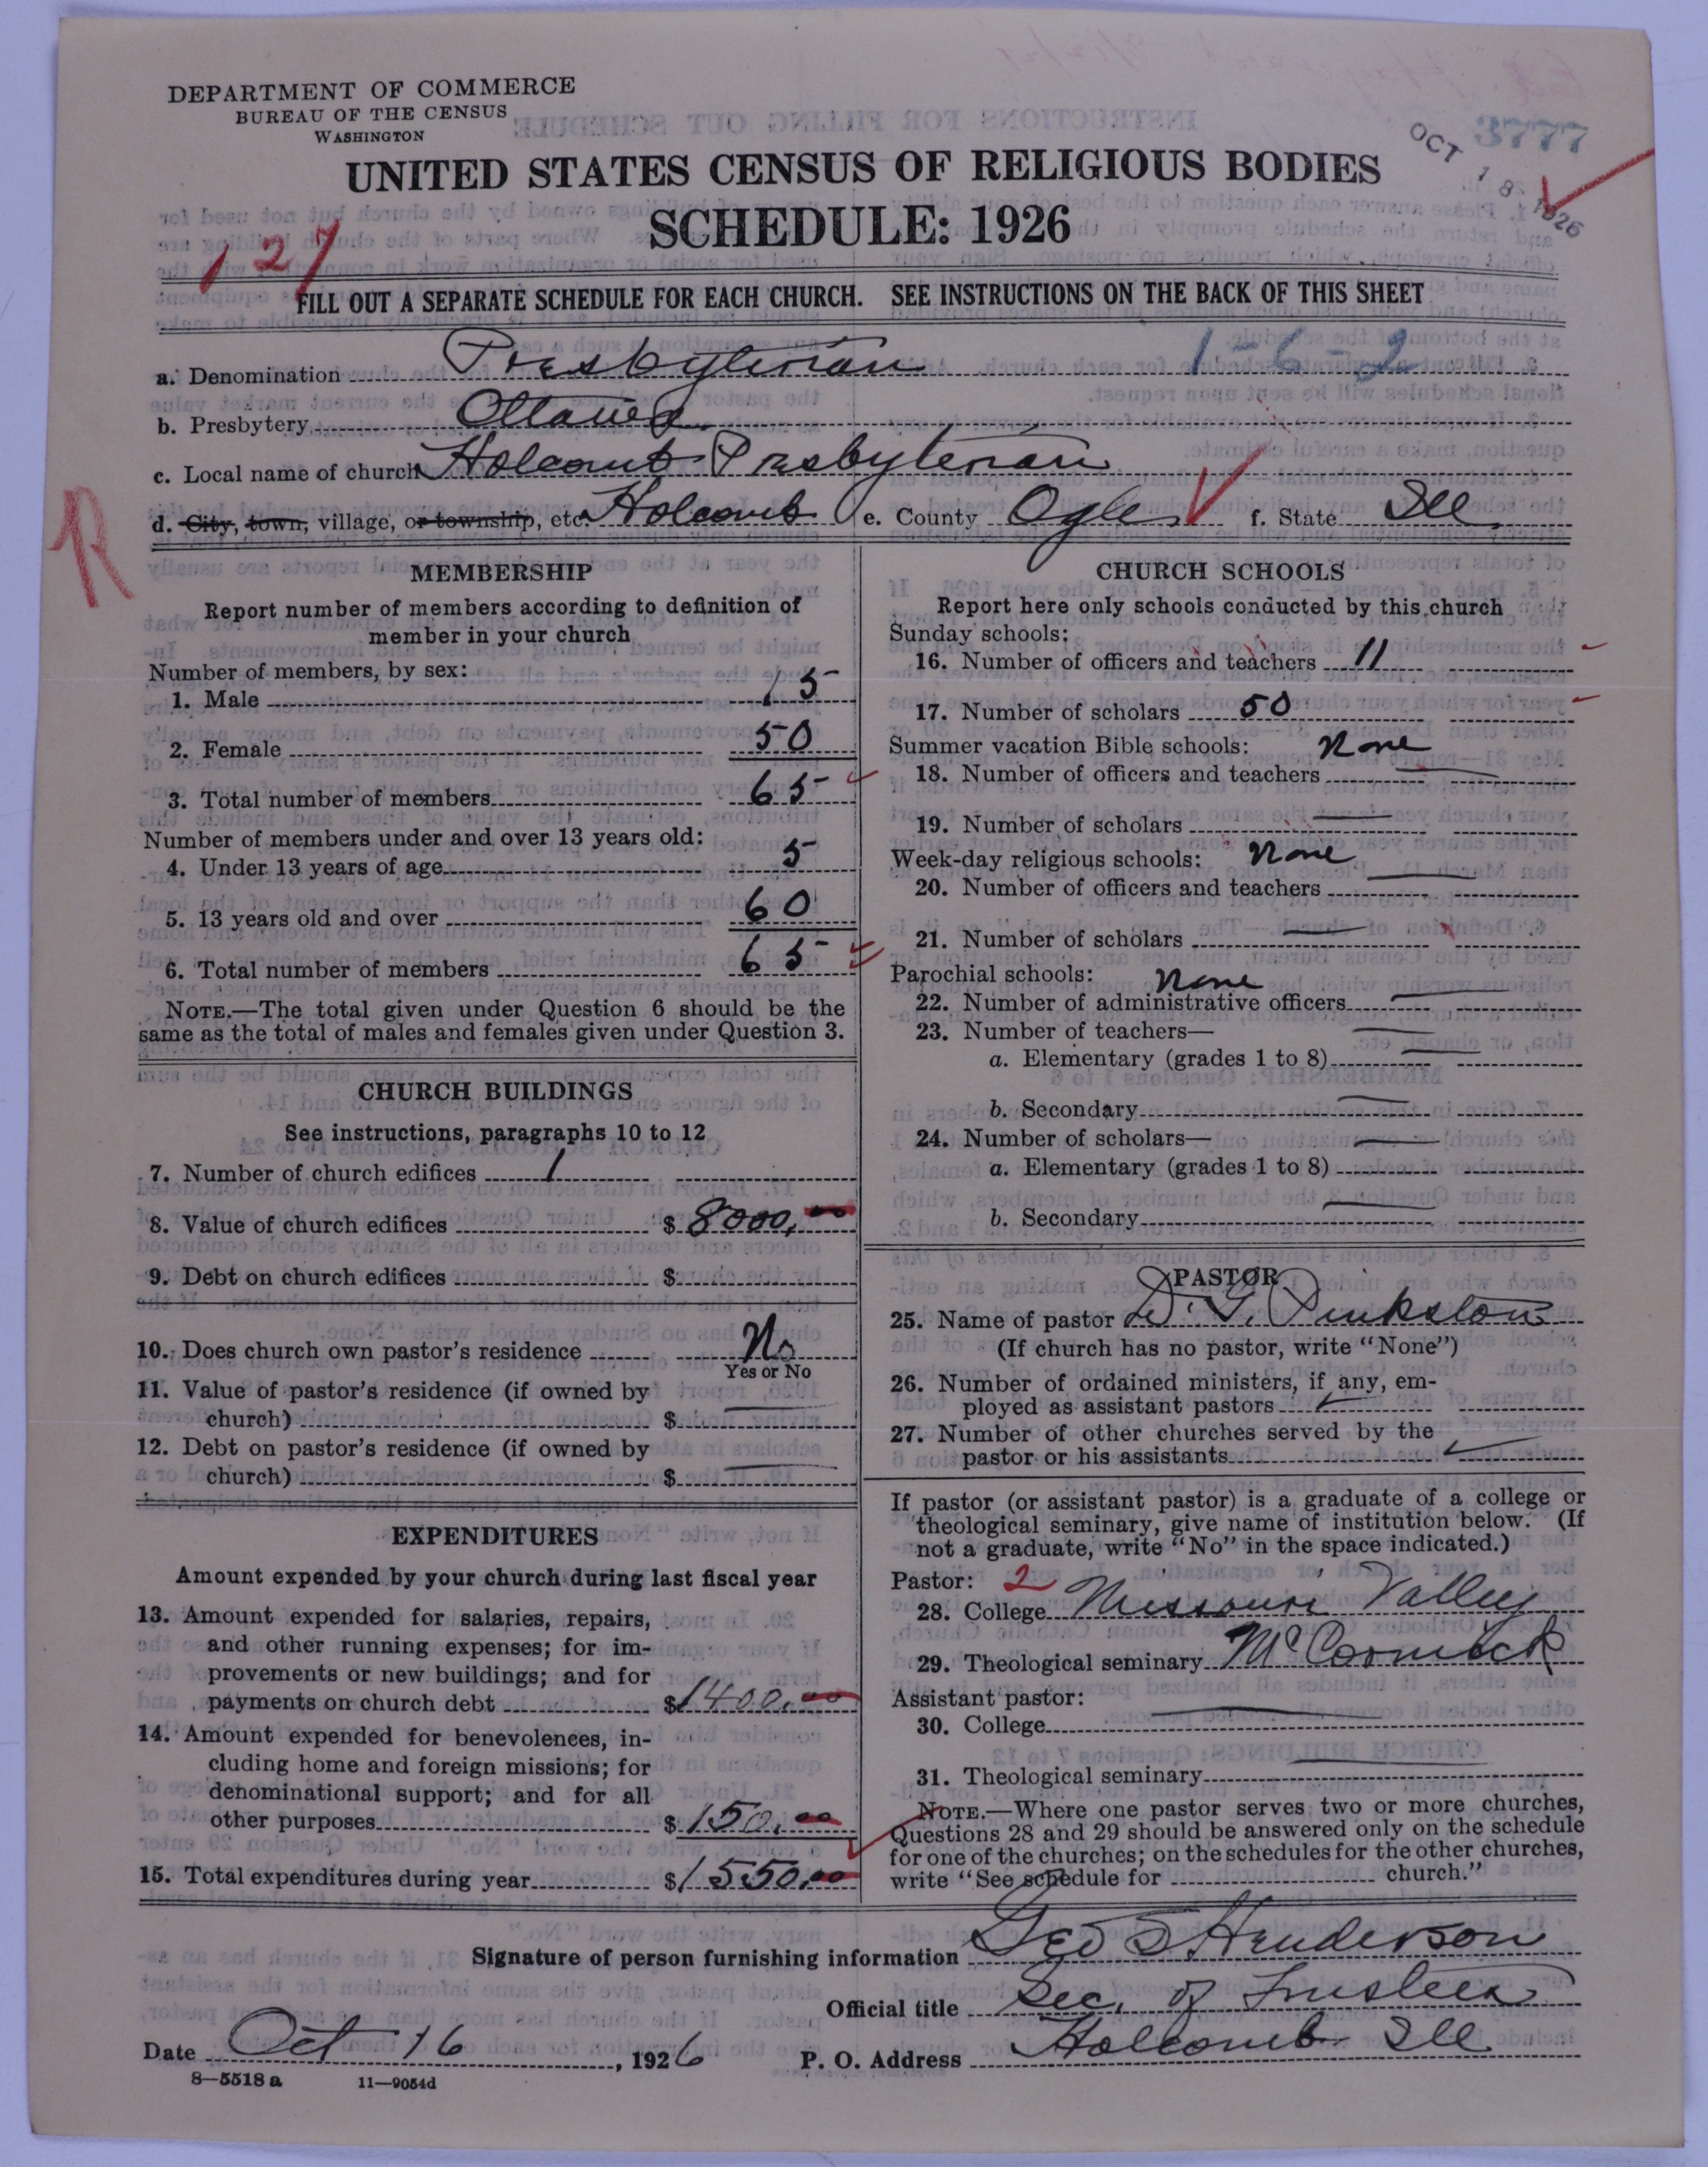 DEPARTMENT OF COMMERCE
BUREAU OF THE CENSUS
WASHINGTON
3777
OCT 18 1926
UNITED STATES CENSUS OF RELIGIOUS BODIES
SCHEDULE: 1926
127
FILL OUT A SEPARATE SCHEDULE FOR EACH CHURCH. SEE INSTRUCTIONS ON THE BACK OF THIS SHEET
a. Denomination Presbyterian 1-6-2
b. Presbytery Ottawa
c. Local name of church Holcomb Presbyterian
d. City, town, village, or township, etc. Holcomb e. County Ogle f. State Ill.
R
MEMBERSHIP
Report number of members according to definition of
member in your church
Number of members, by sex:
1. Male 15
2. Female 50
3. Total number of members 65
Number of members under and over 13 years old:
4. Under 13 years of age 5
5. 13 years old and over 60
6. Total number of members 65
NOTE.—The total given under Question 6 should be the
same as the total of males and females given under Question 3.
CHURCH BUILDINGS
See instructions, paragraphs 10 to 12
7. Number of church edifices 1
8. Value of church edifices $ 8000.00
9. Debt on church edifices $
10. Does church own pastor's residence No
Yes or No
11. Value of pastor's residence (if owned by
church) $
12. Debt on pastor's residence (if owned by
church) $
EXPENDITURES
Amount expended by your church during last fiscal year
13. Amount expended for salaries, repairs,
and other running expenses; for im-
provements or new buildings; and for
payments on church debt $1400.00
14. Amount expended for benevolences, in-
cluding home and foreign missions; for
denominational support; and for all
other purposes $ 150.00
15. Total expenditures during year $1550.00
CHURCH SCHOOLS
Report here only schools conducted by this church
Sunday schools:
16. Number of officers and teachers 11
17. Number of scholars 50
Summer vacation Bible schools: None
18. Number of officers and teachers
19. Number of scholars
Week-day religious schools: None
20. Number of officers and teachers
21. Number of scholars
Parochial schools: None
22. Number of administrative officers
23. Number of teachers—
a. Elementary (grades 1 to 8)
b. Secondary
24. Number of scholars—
a. Elementary (grades 1 to 8)
b. Secondary
PASTOR
25. Name of pastor D. G. Pinkston
(If church has no pastor, write "None")
26. Number of ordained ministers, if any, em-
ployed as assistant pastors
27. Number of other churches served by the
pastor or his assistants
If pastor (or assistant pastor) is a graduate of a college or
theological seminary, give name of institution below. (If
not a graduate, write "No" in the space indicated.)
Pastor: 2
28. College Missouri Valley
29. Theological seminary McCormick
Assistant pastor:
30. College
31. Theological seminary
NOTE.—Where one pastor serves two or more churches,
Questions 28 and 29 should be answered only on the schedule
for one of the churches; on the schedules for the other churches,
write "See schedule for church."
Signature of person furnishing information Geo S Henderson
Official title Sec. of Trustees
Date Oct 16, 1926 P. O. Address Holcomb Ill
8—5518 a 11—9054d